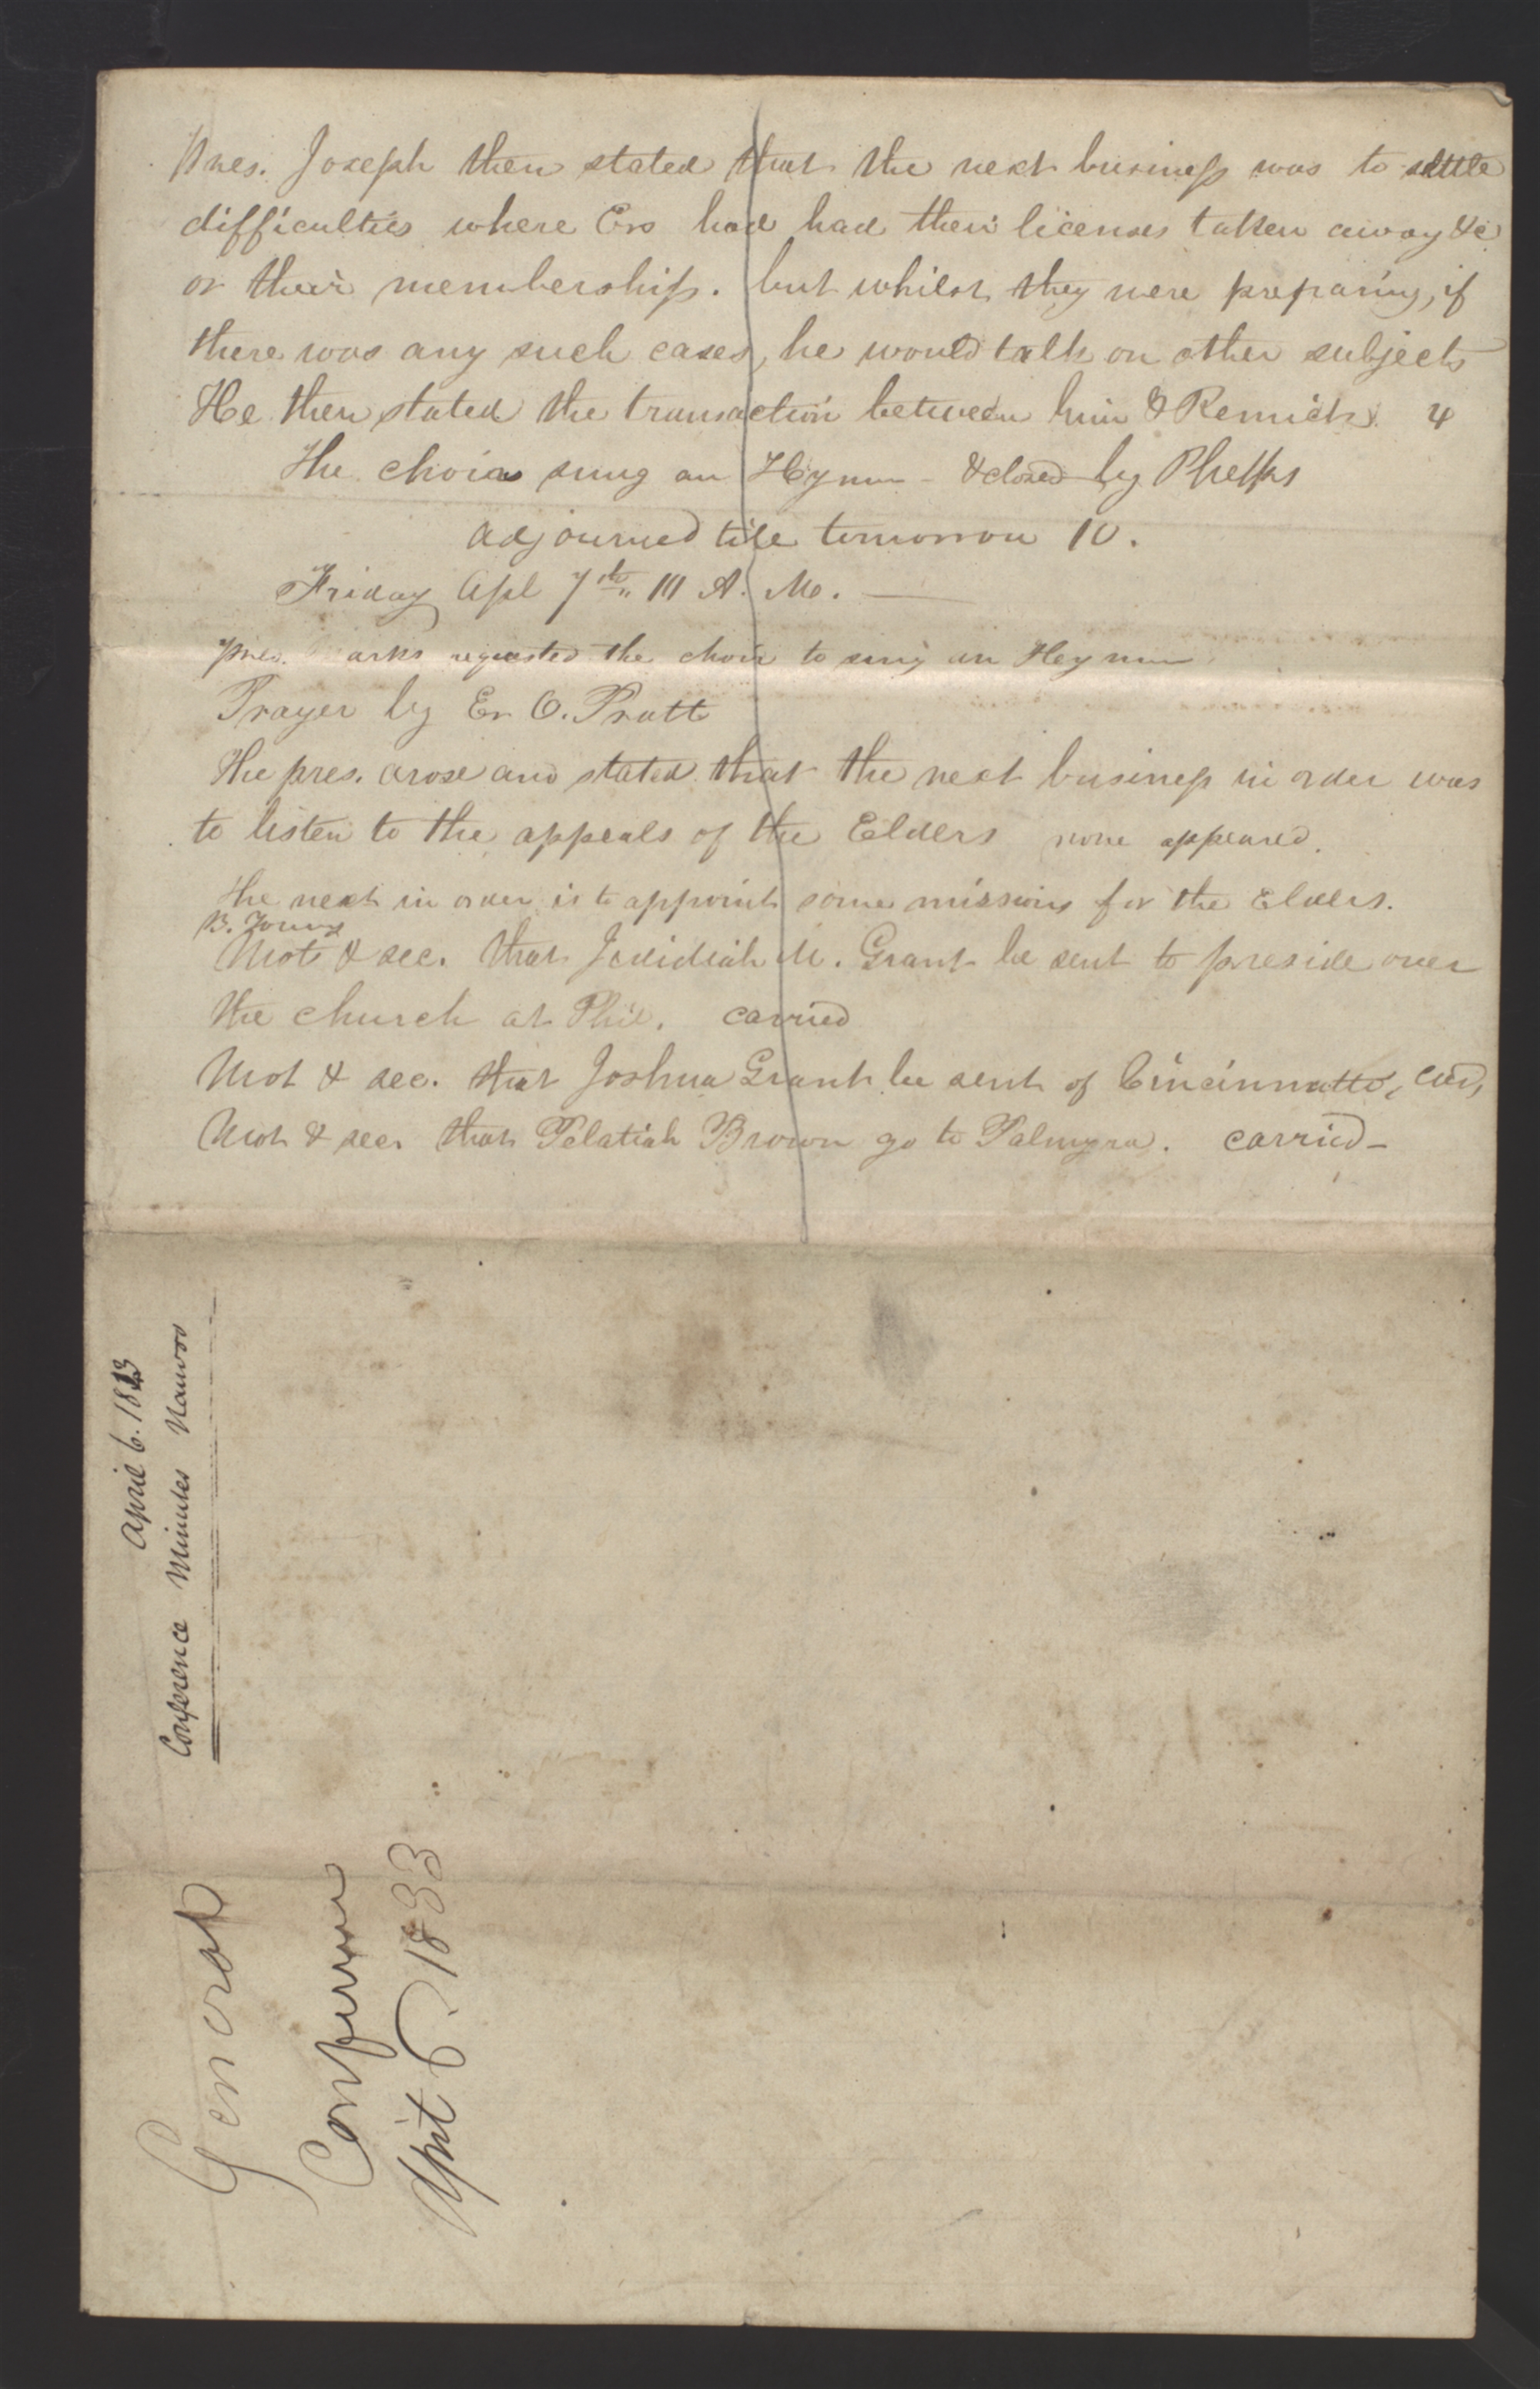 Pres. Joseph then stated that the next business was to settle
difficulties where Ers had had their licenses taken away &c
or their membership. but whilst they were preparing, if
there was any such cases, he would talk on other subjects
He then stated the transaction between him & Remick. 4
The choir sung an Hymn - & closed by Phelps
adjourned till tomorrow 10.
Friday Apl 7th 10 A. M.
pres. arks requested the choir to sing an Hymn
Prayer by Er O. Pratt
The pres. arose and stated that the next business in order was
to listen to the appeals of the Elders none appeared.
the next in order is to appoint some missions for the Elders.
B. Young
Mot & sec. that Jedidiah M. Grant be sent to preside over
the church at Phil. carried
Mot & sec. that Joshua Grant be sent of Cincinnatti, card,
Mot & sec. that Pelatiah Brown go to Palmyra. carried-
April 6. 1843
Conference Minutes Nauvoo
General
Conference
April 6 1833